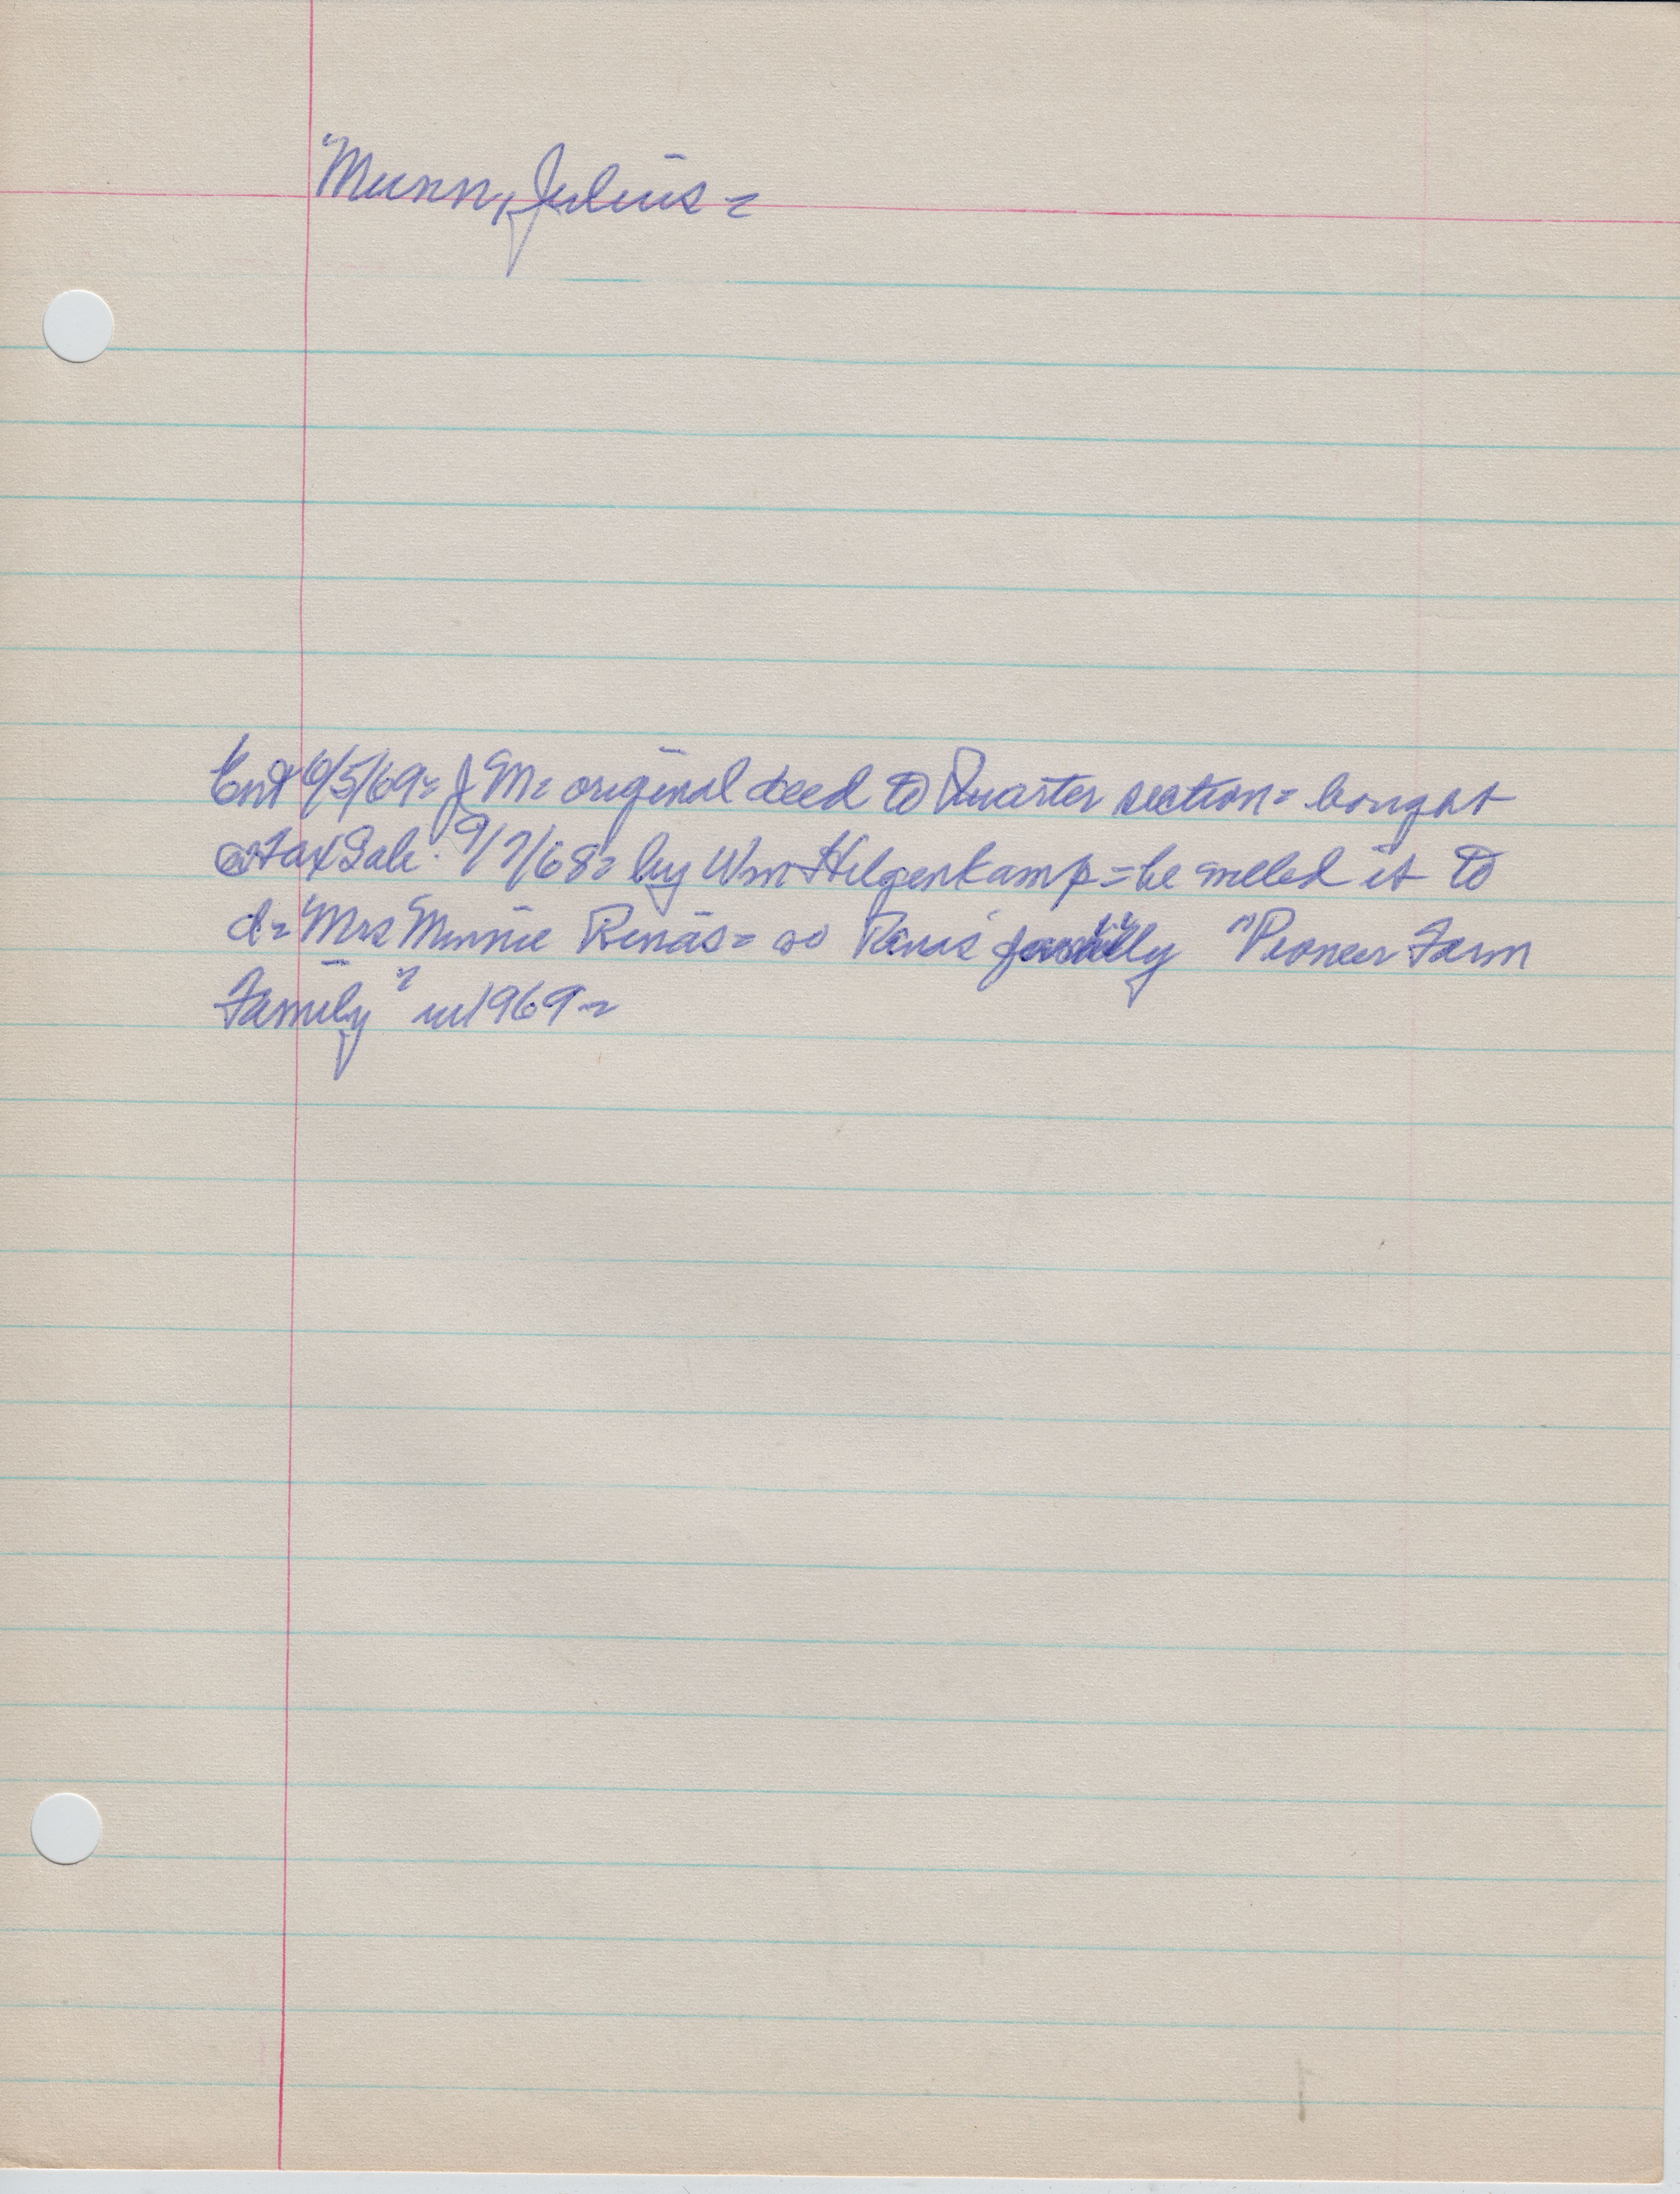 Munn, Julius =
Ent 6/5/69 = J M = original deed to Quarter section = bought
@ Tax Sale. 9/7/68 = by Wm Hilgenkamp = he willed it to
d = Mrs Minnie Renas = so Renas family "Pioneer Farm
Family" in 1969 =